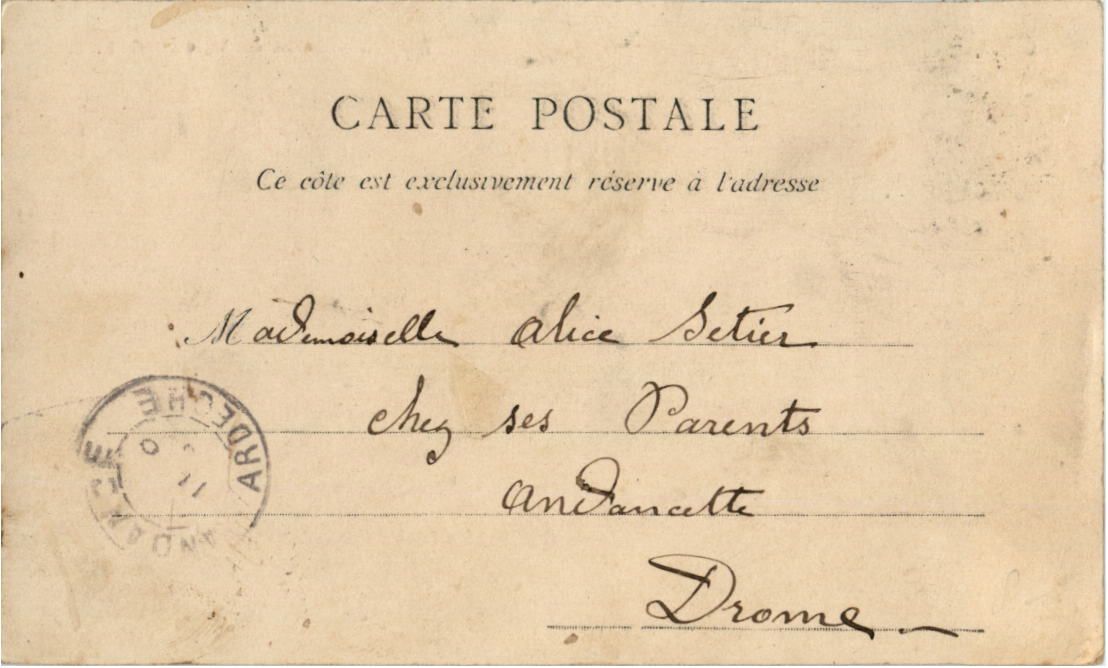 CARTE POSTALE
Ce côté est exclusivement réservé à l'adresse
Mademoiselle Alice Setier
chez ses Parents
Andancette
Drome
ANDANCE ARDECHE
11